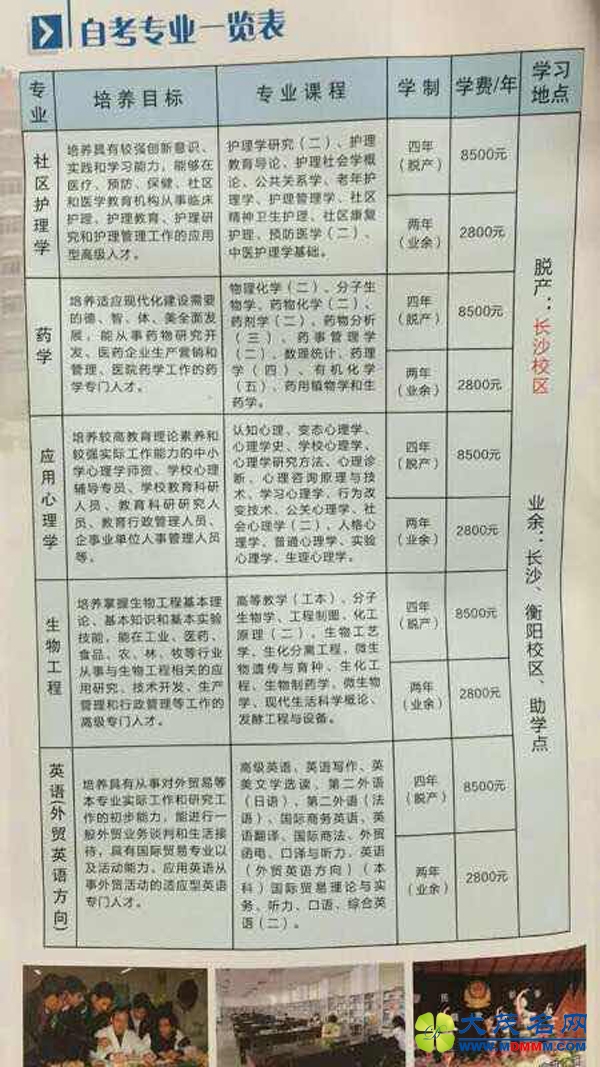 自考专业一览表
专业
培养目标
专业课程
学制
学费/年
学习
地点
社区护理学
培养具有较强创新意识、
实践和学习能力，能够在
医疗、预防、保健、社区
和医学教育机构从事临床
护理、护理教育、护理研
究和护理管理工作的应用
型高级人才。
护理学研究（二）、护理
教育导论、护理社会学概
论、公共关系学、老年护
理学、护理管理学、社区
精神卫生护理、社区康复
护理、预防医学（二）、
中医护理学基础。
四年
（脱产）
8500元
两年
（业余）
2800元
药学
培养适应现代化建设需要
的德、智、体、美全面发
展，能从事药物研究开
发、医药企业生产营销和
管理、医院药学工作的药
学专门人才。
物理化学（二）、分子生
物学、药物化学（二）、
药剂学（二）、药物分析
（三）、药事管理学
（二）、数理统计、药理
学（四）、有机化学
（五）、药用植物学和生
药学。
四年
（脱产）
8500元
两年
（业余）
2800元
应用心理学
培养较高教育理论素养和
较强实际工作能力的中小
学心理学师资、学校心理
辅导专员、学校教育科研
人员、教育科研研究人
员、教育行政管理人员、
企事业单位人事管理人员
等。
认知心理、变态心理学、
心理学史、学校心理学、
心理学研究方法、心理诊
断、心理咨询原理与技
术、学习心理学、行为改
变技术、公关心理学、社
会心理学（二）、人格心
理学、普通心理学、实验
心理学、生理心理学。
四年
（脱产）
8500元
两年
（业余）
2800元
生物工程
培养掌握生物工程基本理
论、基本知识和基本实验
技能，能在工业、医药、
食品、农、林、牧等行业
从事与生物工程相关的应
用研究、技术开发、生产
管理和行政管理等工作的
高级专门人才。
高等教学（工本）、分子
生物学、工程制图、化工
原理（二）、生物工艺
学、生化分离工程、微生
物遗传与育种、生化工
程、生物制药学、微生物
学、现代生活科学概论、
发酵工程与设备。
四年
（脱产）
8500元
两年
（业余）
2800元
英语(外贸英语方向)
培养具有从事对外贸易等
本专业实际工作和研究工
作的初步能力，能进行一
般外贸业务谈判和生活接
待，具有国际贸易专业以
及活动能力、应用英语从
事外贸活动的适应型英语
专门人才。
高级英语、英语写作、英
美文学选读、第二外语
（日语）、第二外语（法
语）、国际商务英语、英
语翻译、国际商法、外贸
函电、口译与听力、英语
（外贸英语方向）（本
科）国际贸易理论与实
务、听力、口语、综合英
语（二）。
四年
（脱产）
8500元
两年
（业余）
2800元
脱产：长沙校区
业余：长沙、衡阳校区、助学点
大茂名网
www.MDMMM.com